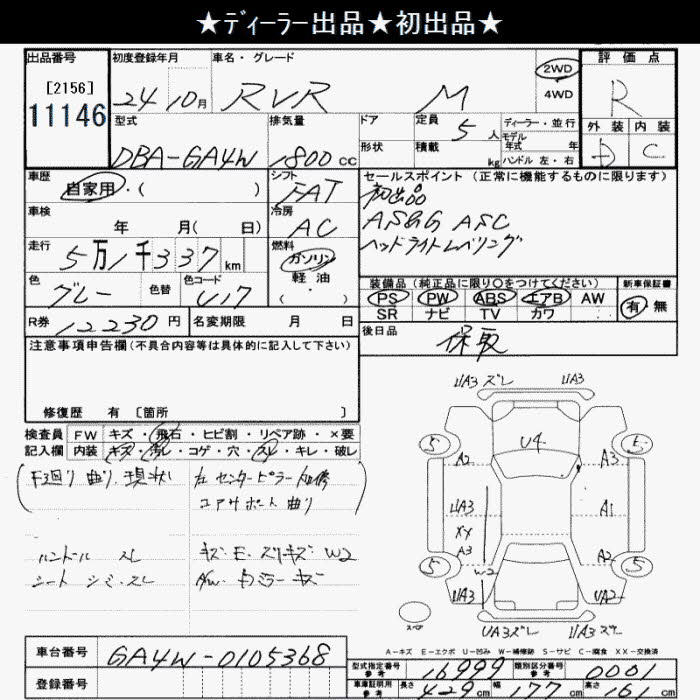 ★ディーラー出品★初出品★
出品番号 初度登録年月 車名・グレード 評価点
[2156]
11146
24 10月 RVR M 2WD 4WD R
型式 排気量 ドア 定員 5人 ディーラー・並行 外装 内装
DBA-GA4W 1800cc 形状 積載 kg モデル年式 年 ハンドル 左・右 D C
車歴 シフト セールスポイント(正常に機能するものに限ります)
自家用・( ) FAT 初出品
車検 冷房 AS&G ASC
年 月( 日) AC ヘッドライトレベリング
走行 燃料
5万1千337km ガソリン 軽油・( )
色 色替 色コード 装備品(純正品に限り○をつけてください) 新車保証書
グレー U17 PS PW ABS エアB AW 有・無
SR ナビ TV カワ
R券 12230円 名変期限 月 日 後日品 保取
注意事項申告欄(不具合内容等は具体的に記入して下さい)
修復歴 有 [箇所 ]
検査員 FW キズ・飛石・ヒビ割・リペア跡・×要
記入欄 内装 キズ・汚レ・コゲ・穴・スレ・キレ・破レ
(F廻り 曲り 現状) 左センターピラー 加修
コアサポート曲り
ハンドル スレ キズ・E・スリキズ W2
シート シミ・スレ A/W・ドアミラー キズ
UA3ズレ UA3
5 U4 5
A2 A3
UA3 A1
XX
A3 A2
5 W2 5
UA3 UA2
スペア UA3ズレ UA3ズレ
A-キズ E-エクボ U-凹み W-補修跡 S-サビ C-腐食 XX-交換済
車台番号 GA4W-0105368
登録番号
型式指定番号 参考 16999 類別区分番号 参考 0001
車庫証明用 参考 長さ 429cm 幅 177cm 高さ cm